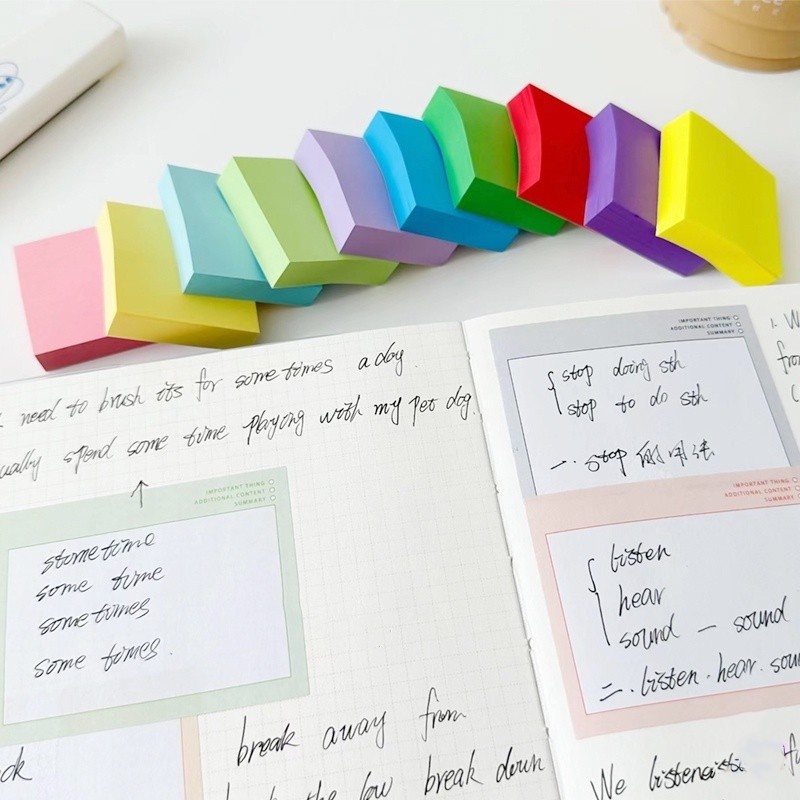 need to brush its for some times a day.
ually spend some time playing with my pet dog.
IMPORTANT THING
ADDITIONAL CONTENT
SUMMARY
stometime
some time
sometimes
some times.
break away from
the low break down
IMPORTANT THING
ADDITIONAL CONTENT
SUMMARY
stop doing sth
stop to do sth
一. stop 的用法
IMPORTANT THING
ADDITIONAL CONTENT
SUMMARY
listen
hear
sound — sound
二. listen. hear. soun
We
1. W